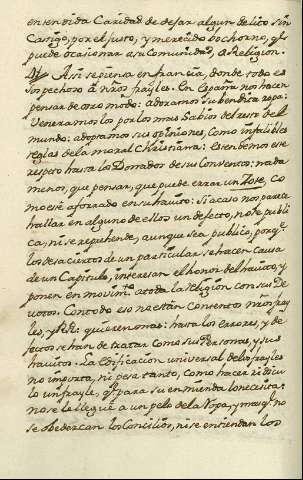 entendida Caridad de dexar algun delito sin
Castigo, por el justo, y merecido bochorno, q̃ l
puede ocasionar a su Comunidad, o Religion.
Asi se piensa en francia, donde todo es
sospechoso a nr̃os frayles. En España nos hacen
pensar de otro modo: adoramos su bendita ropa:
Veneramos los por los mas sabios del resto del
mundo: adoptamos sus opiniones, como infalibles
reglas de la moral Christiana: estendemos ese
respeto hasta los Donados de sus Conventos: nada
menos, que pensar, que puede errar un Lose, co
mo esté aforrado en su havito: si acaso nos parece
hallar en alguno de ellos un defecto, no se publi
ca, ni se reprehende, aunque sea publico, porq.e
los desaciertos de un particular se hacen causa
de un Capitulo, interesan el honor del havito, y
ponen en movim.to a toda la Religion con sus De
votos. Con todo eso no están contentos nr̃os fray
les, y RR.s quieren mas: hasta los errores, y de
fectos se han de tratar como sus Personas, y sus
havitos. La edificacion universal de los frayles
no importa, ni pesa tanto, como hacer ridicu
lo un frayle, q̃ para su enmienda lo necesita:
no se le llegue a un pelo de la Ropa, y mas q.e no
se obedezcan los Concilios, ni se entiendan los